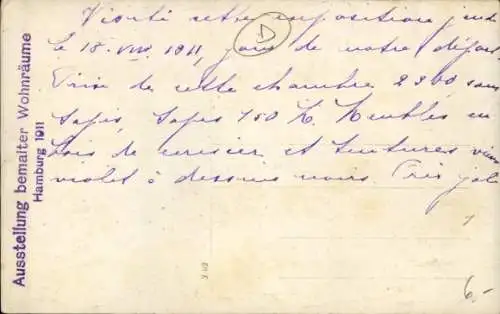 Visité cette exposition jeudi
le 18. VIII. 1911, jour de notre départ
Prix de cette chambre 2300 sans
tapis, tapis 750 M. Meubles en
bois de cerisier et tentures vieux
violet à dessins noirs. Très joli
D
Ausstellung bemalter Wohnräume
Hamburg 1911
6.-